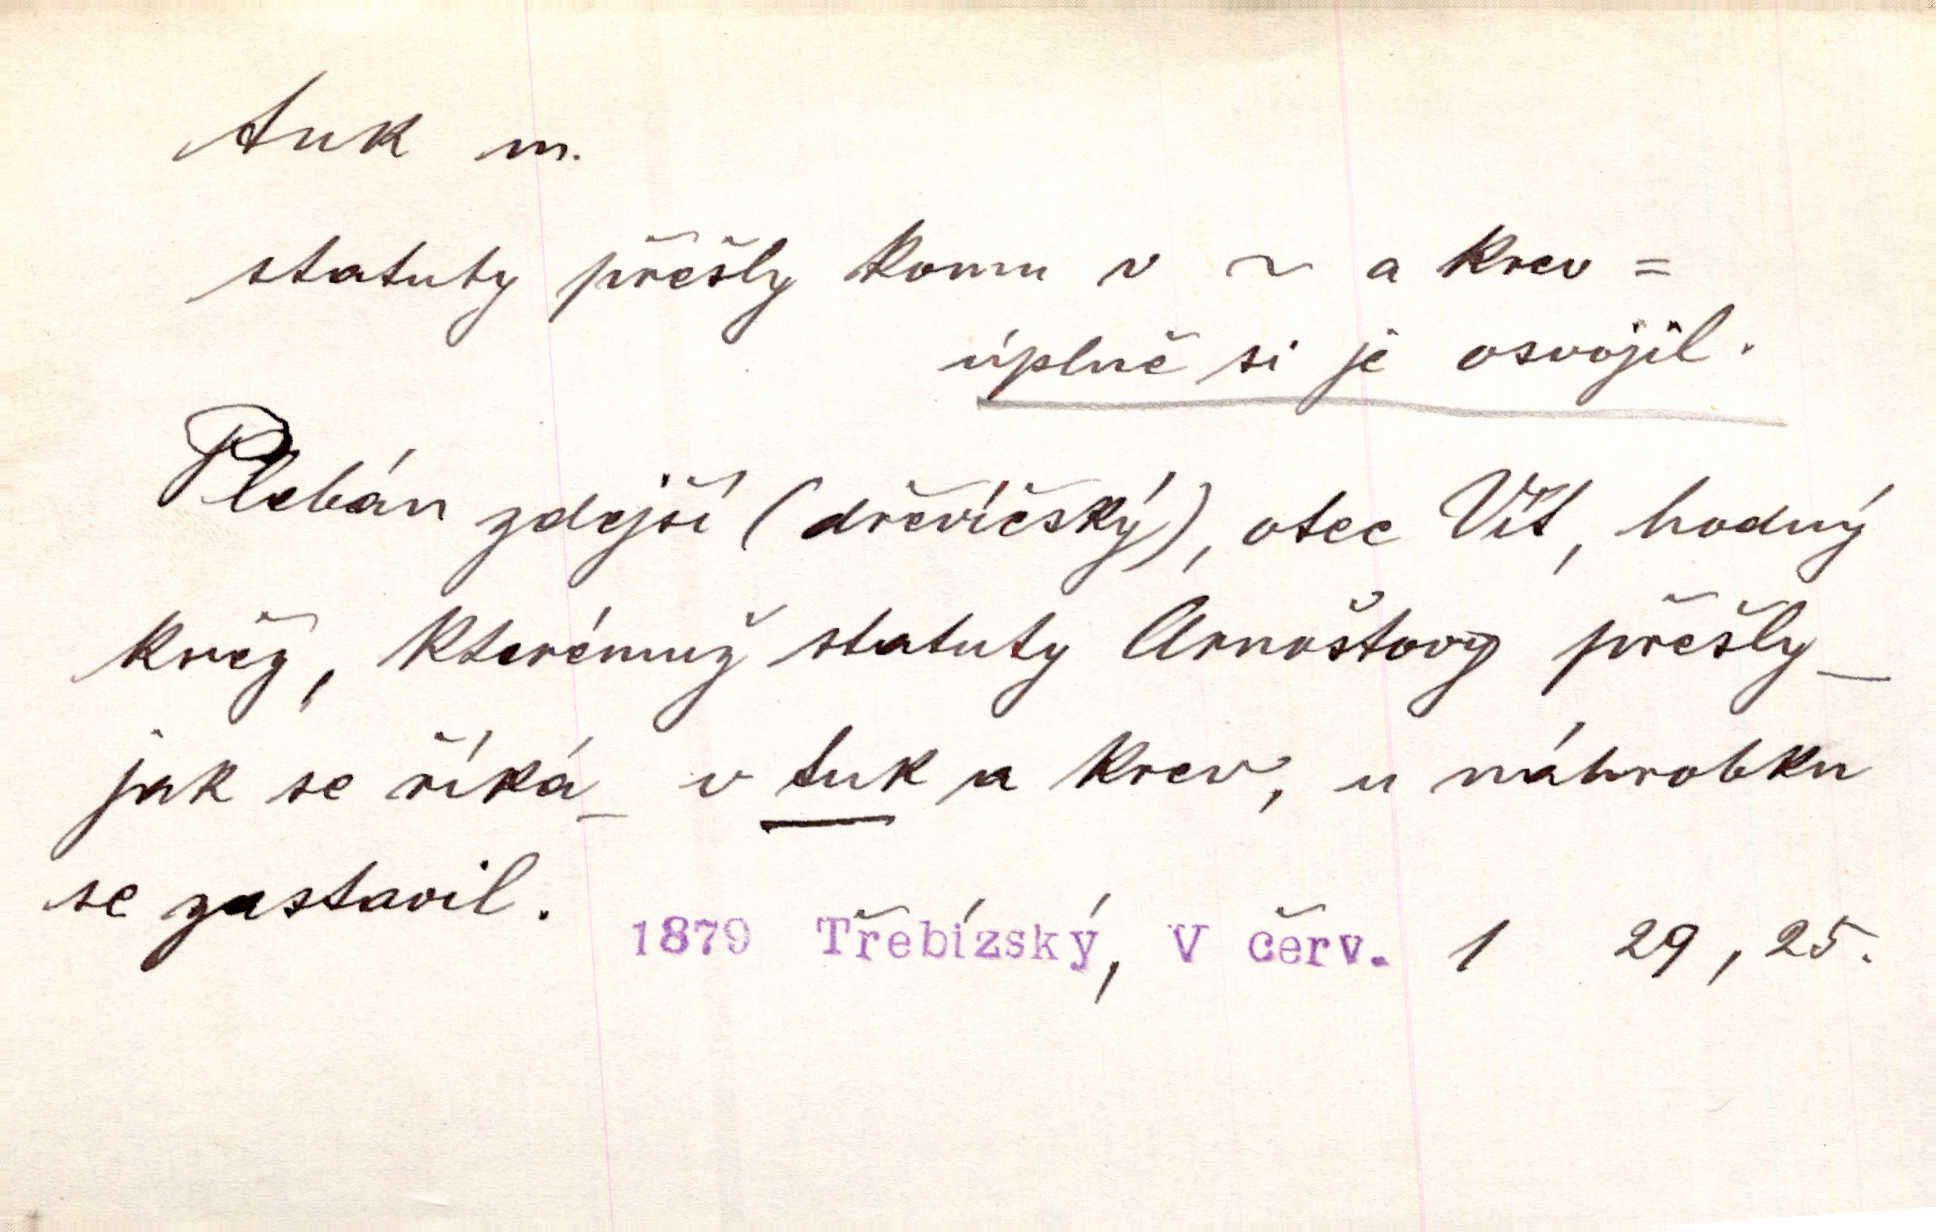 tuk m.
statuty přešly komu v ~ a krev =
úplně si je osvojil.
Plebán zdejší (dřevíčský), otec Vít, hodný
kněz, kterémuž statuty Arnoštovy přešly _
jak se říká _ v tuk a krev, u náhrobku
se zastavil.
1879 Třebízský, V červ. 1 29, 25.